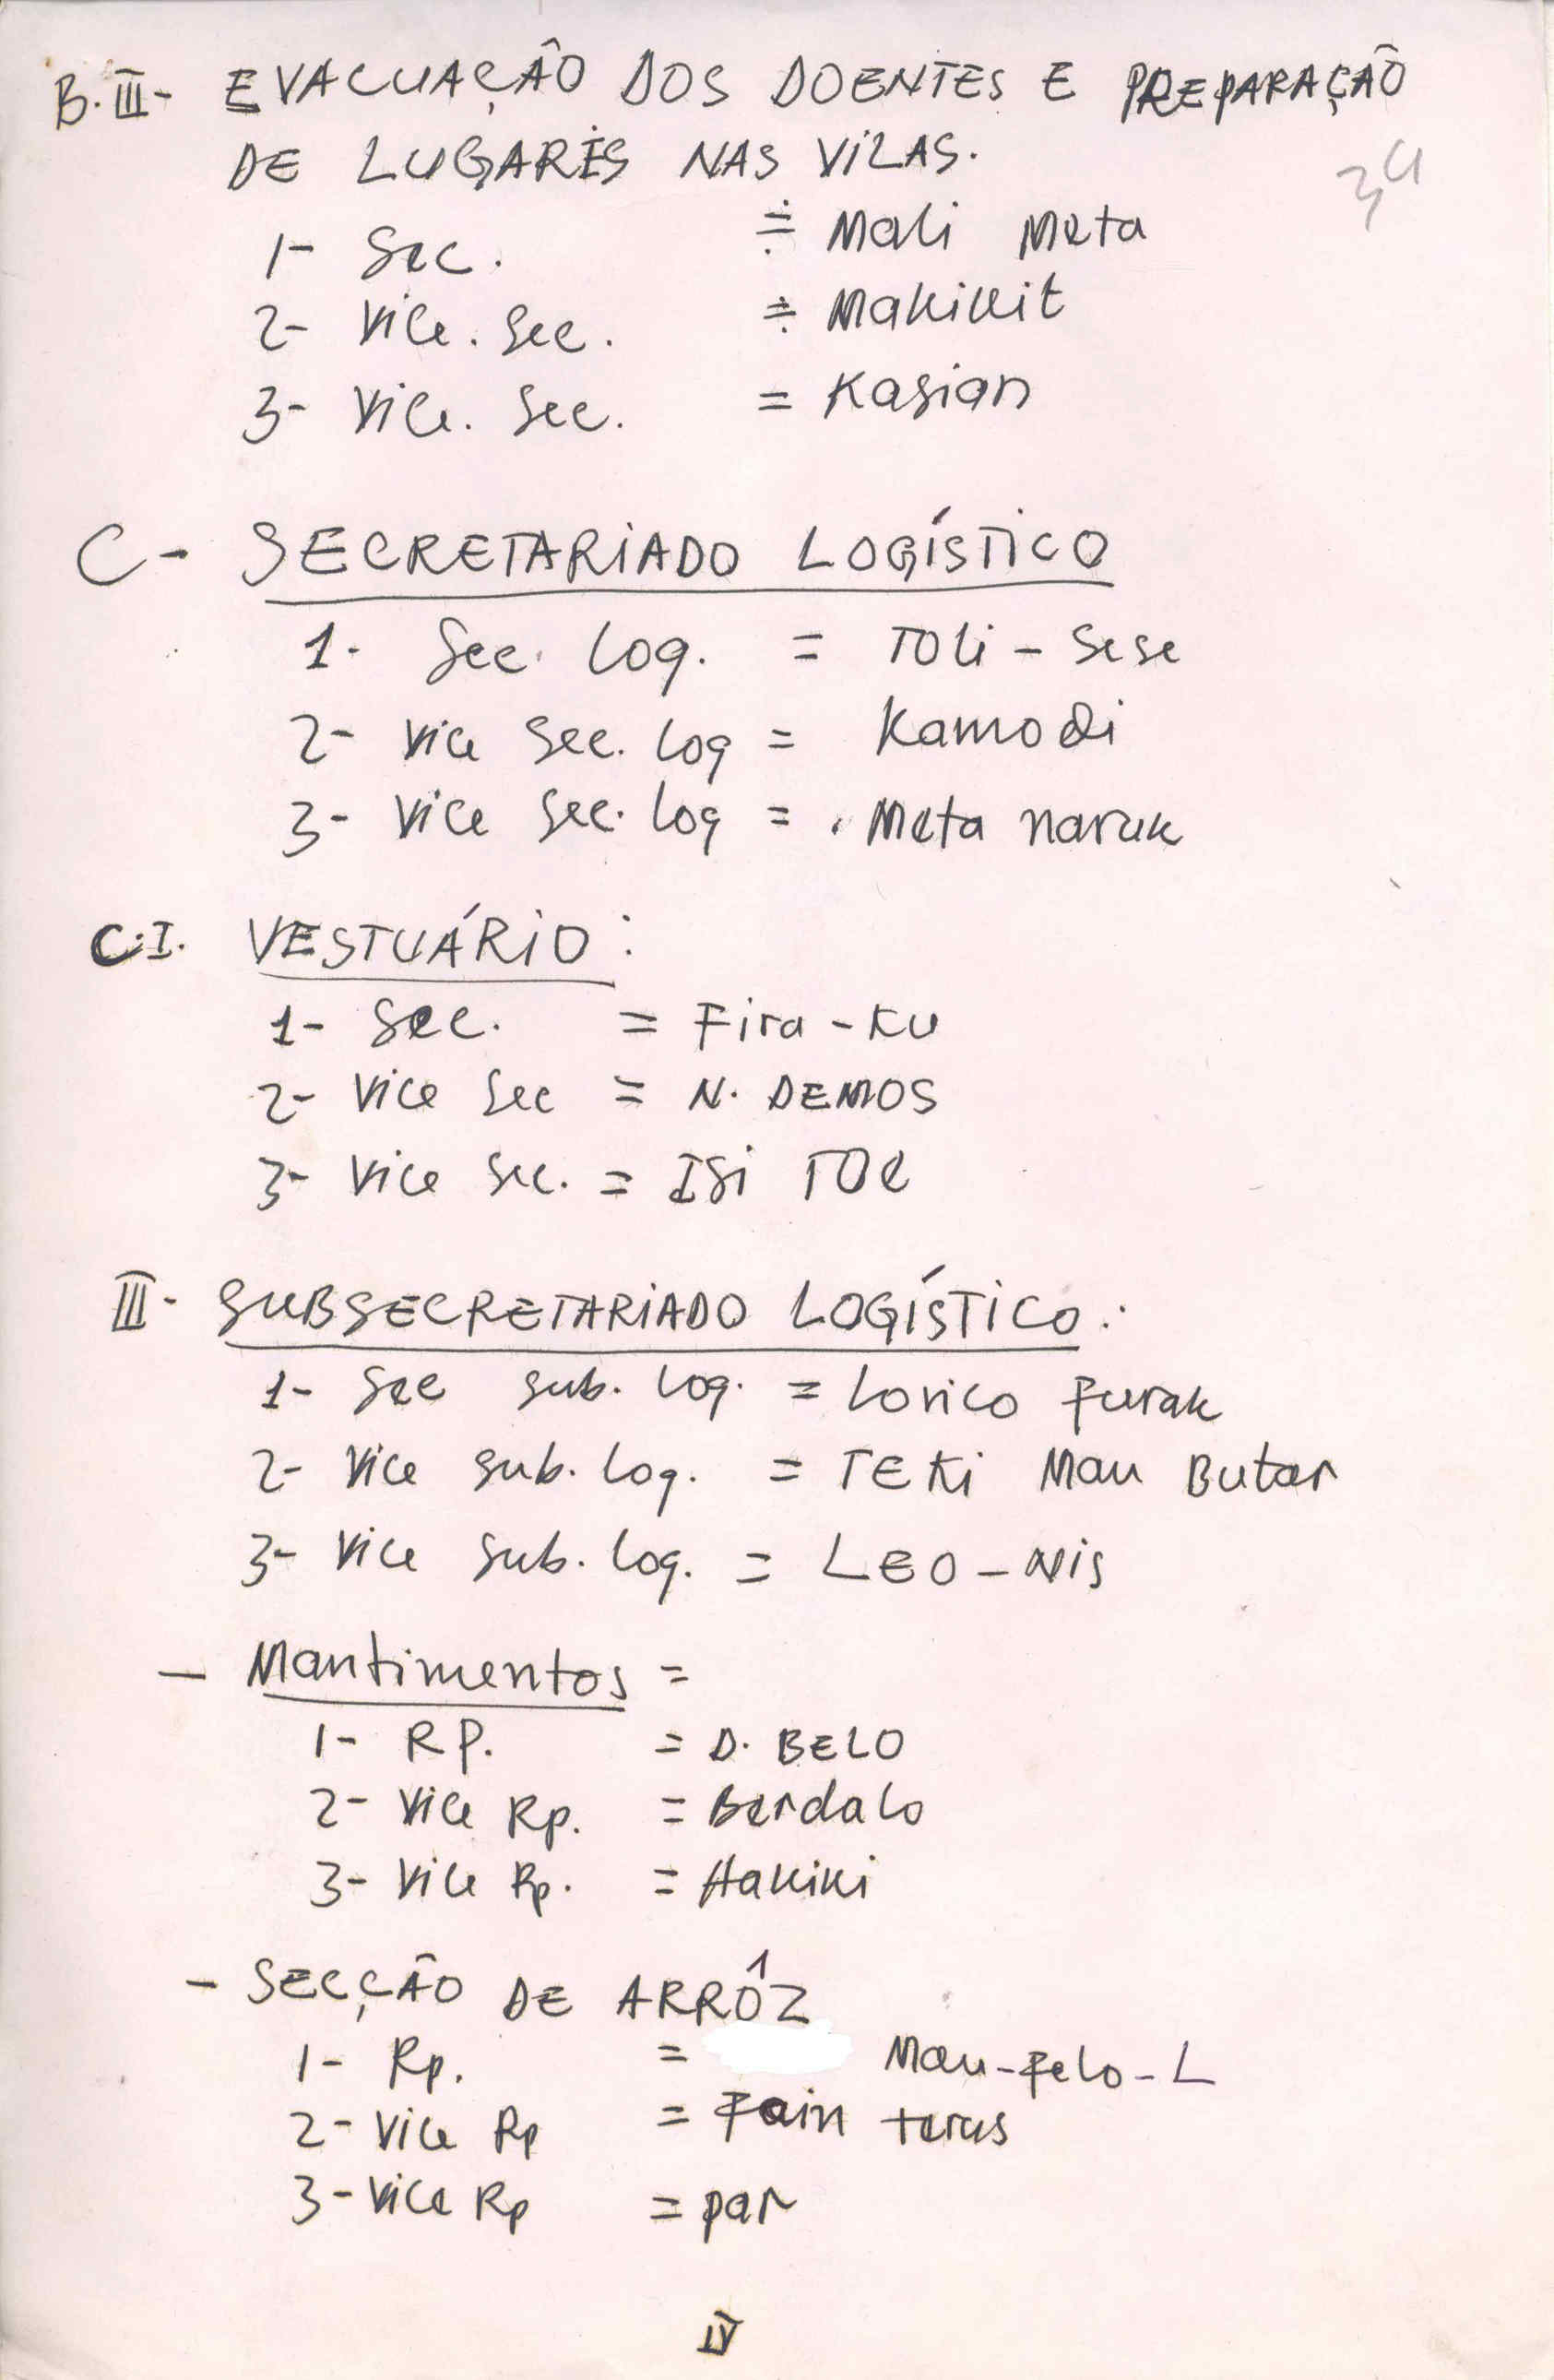 B.III- EVACUAÇÃO DOS DOENTES E PREPARAÇÃO
DE LUGARES NAS VILAS.
34
1- Sec. = Mali Meta
2- Vice. Sec. = Makikit
3- Vice. Sec. = Kasian
C- SECRETARIADO LOGÍSTICO
1. Sec. Log. = TOLi - Sese
2- Vice Sec. Log = Kamodi
3- Vice Sec. Log = Meta naruk
C.I. VESTUÁRIO:
1- Sec. = Fira-Ku
2- Vice Sec = N. DEMOS
3- Vice Sec. = ISi TOE
III- SUBSECRETARIADO LOGÍSTICO:
1- Sec sub. Log. = Lorico Furak
2- Vice sub. Log. = TEKi Mau Butar
3- Vice Sub. Log. = LEO-Nis
- Mantimentos =
1- RP. = D. BELO
2- Vice Rp. = Berdalo
3- Vice Rp. = Hakiki
- SECÇÃO DE ARRÓZ
1- Rp. = Mau-Felo-L
2- Vice Rp = Fain terus
3- Vice Rp = par
IV